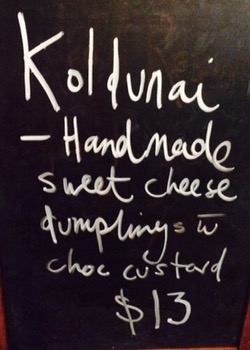 Koldunai
- Handmade
sweet cheese
dumplings w̅
choc custard
$13